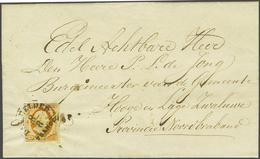 Edel Achtbare Heer
Den Heere P. L. de Jong
Burgemeester van de Gemeente
Hooge en Lage Zwaluwe
Provincie Noordbraband